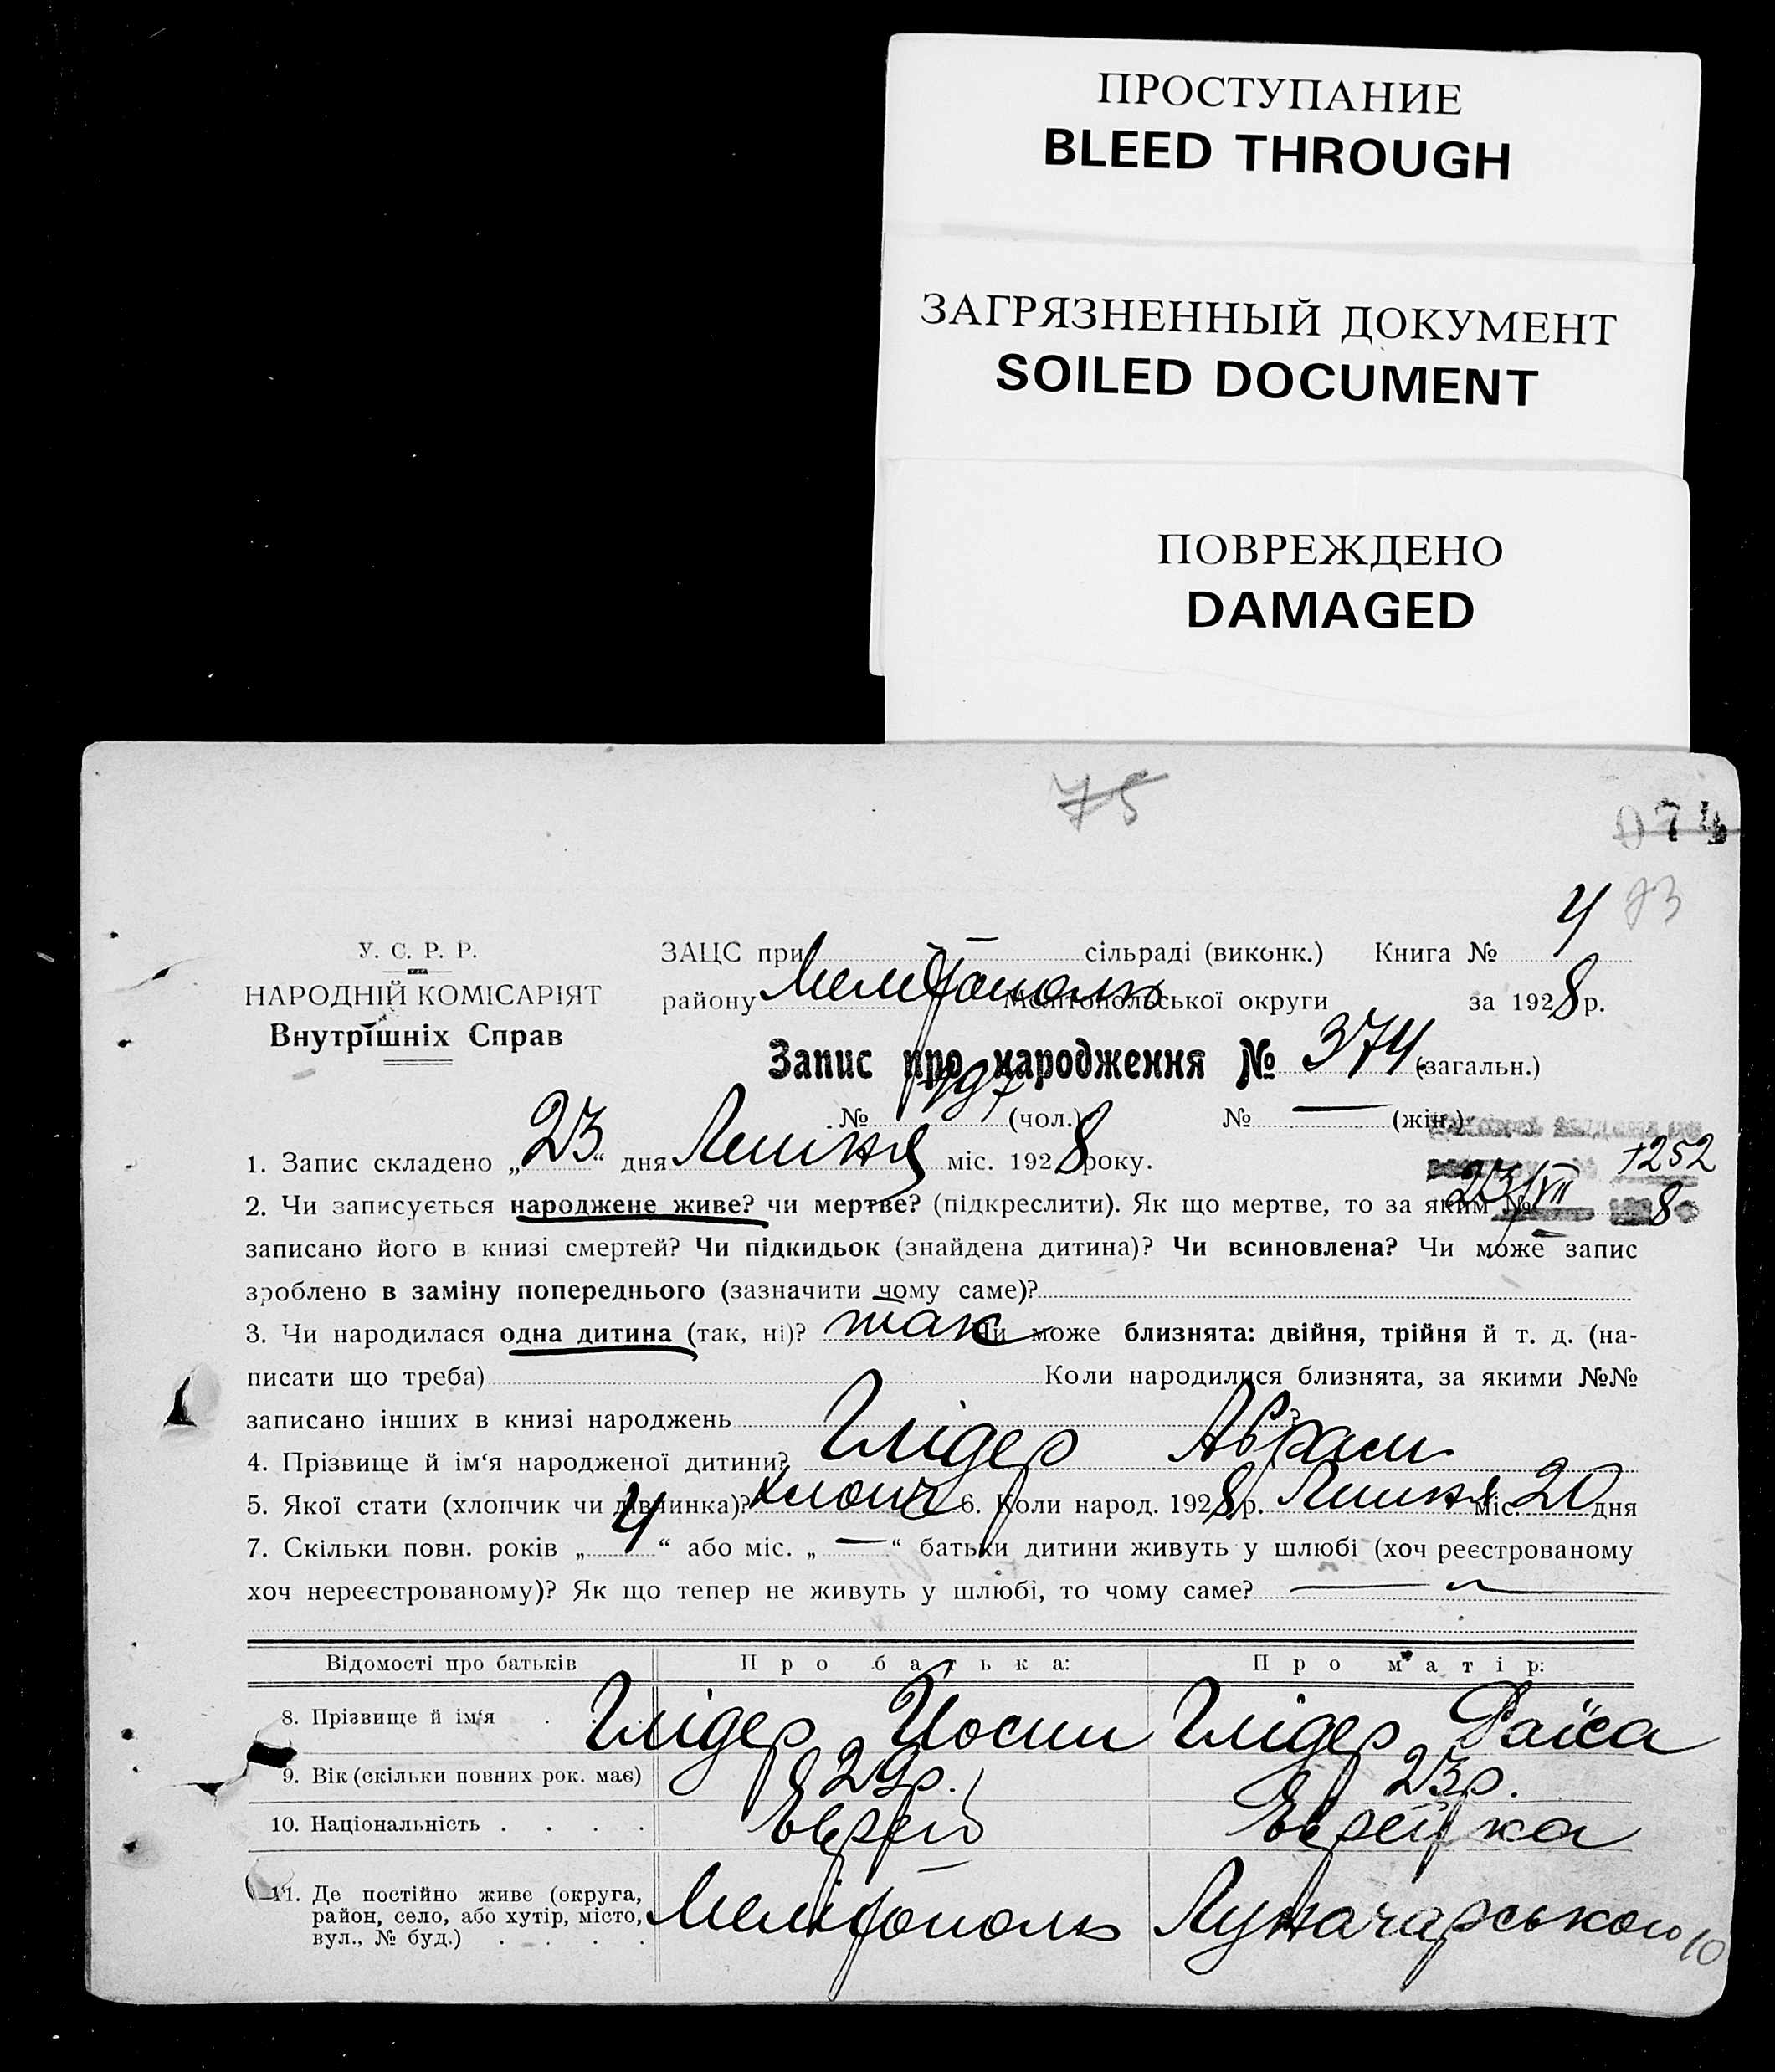 ПРОСТУПАНИЕ
BLEED THROUGH
ЗАГРЯЗНЕННЫЙ ДОКУМЕНТ
SOILED DOCUMENT
ПОВРЕЖДЕНО
DAMAGED
75
074
4 73
У. С. Р. Р.
НАРОДНІЙ КОМІСАРІЯТ
Внутрішніх Справ
ЗАЦС при — сільраді (виконк.) Книга №
району Мелітополь Мелітопольської округи за 1928 р.
Запис про народження № 374 (загальн.)
№ 197 (чол.) № — (жін.)
1252
1. Запис складено „23“ дня Липня міс. 1928 року.
23/VII 8
2. Чи записується народжене живе? чи мертве? (підкреслити). Як що мертве, то за яким №
записано його в книзі смертей? Чи підкидьок (знайдена дитина)? Чи всиновлена? Чи може запис
зроблено в заміну попереднього (зазначити чому саме)?
3. Чи народилася одна дитина (так, ні)? так Чи може близнята: двійня, трійня й т. д. (на-
писати що треба) Коли народилися близнята, за якими №№
записано інших в книзі народжень
4. Прізвище й ім‘я народженої дитини? Глідер Абрам
5. Якої стати (хлопчик чи дівчинка)? хлопч 6. Коли народ. 1928 р. Липня міс. 20 дня
7. Скільки повн. років „4“ або міс. „—“ батьки дитини живуть у шлюбі (хоч реєстрованому
хоч нереєстрованому)? Як що тепер не живуть у шлюбі, то чому саме?
Відомості про батьків Про батька: Про матір:
8. Прізвище й ім‘я . . . Глідер Йосип Глідер Раїса
9. Вік (скільки повних рок. має) 29 р. 23 р.
10. Національність . . . . Єврей Єврейка
11. Де постійно живе (округа,
район, село, або хутір, місто,
вул., № буд.) . . . .
Мелітополь Луначарського 10